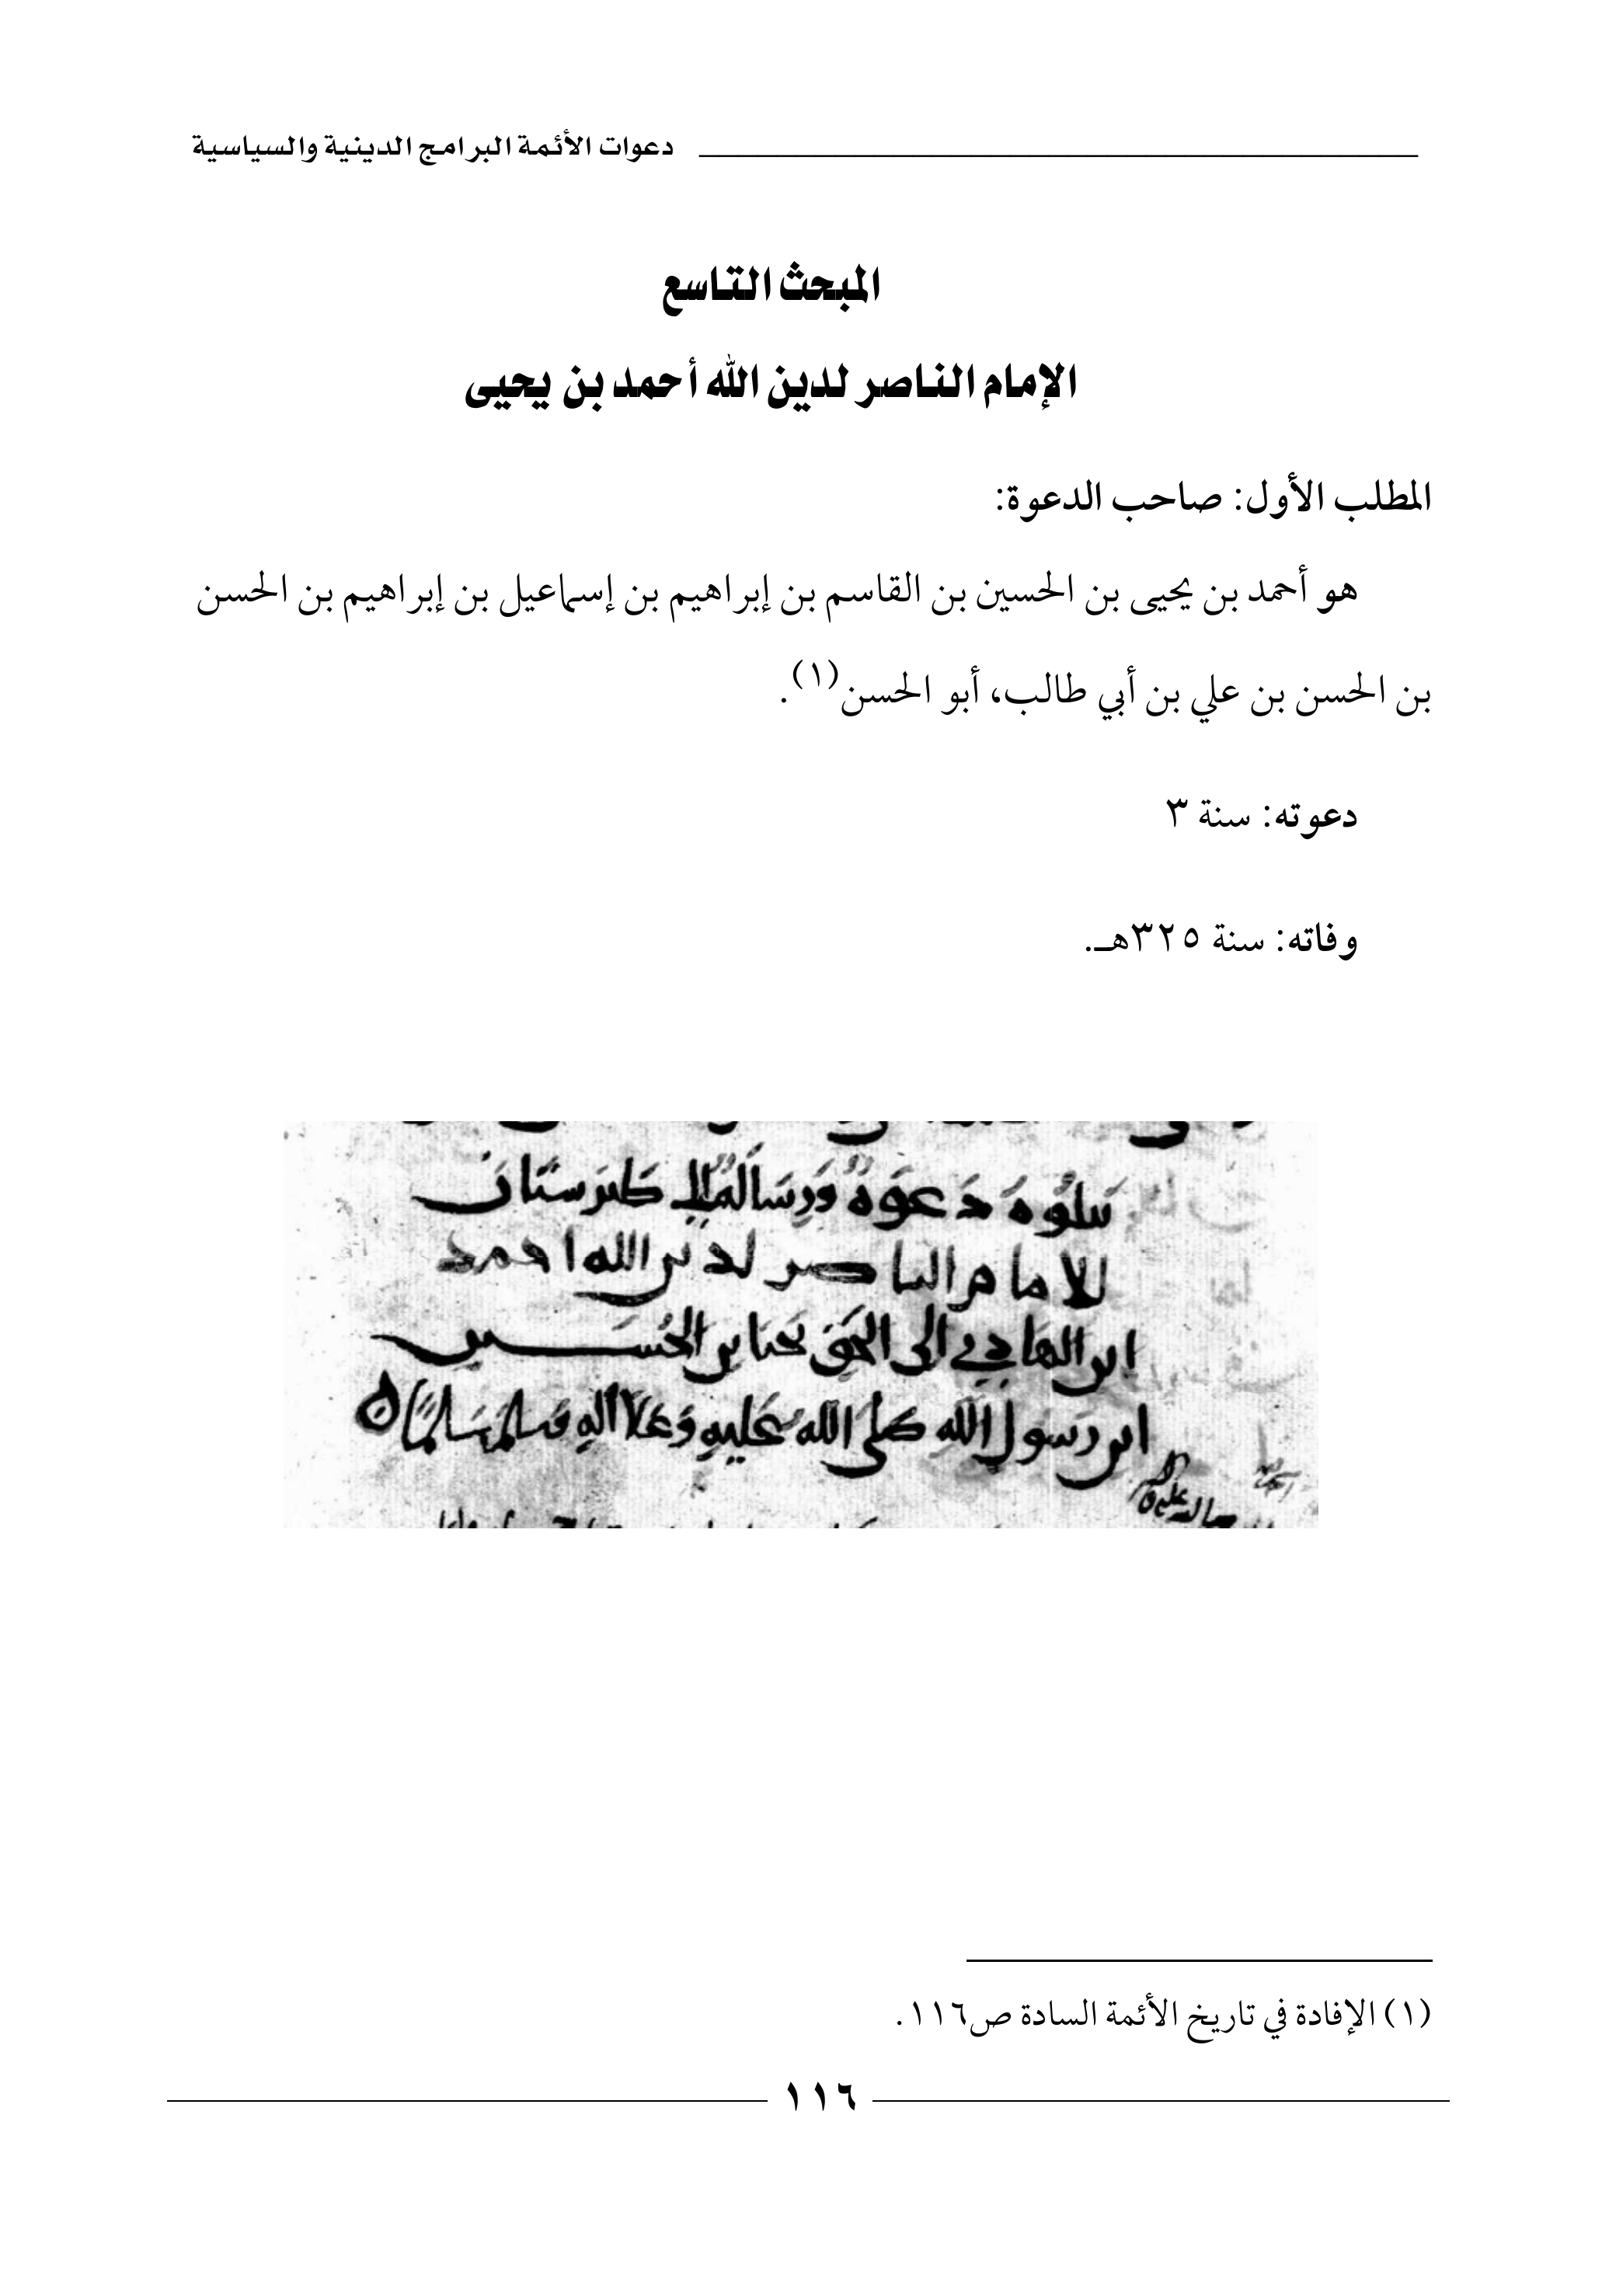 دعوات الأئمة البرامج الدينية والسياسية
المبحث التاسع
الإمام الناصر لدين الله أحمد بن يحيى
المطلب الأول: صاحب الدعوة:
هو أحمد بن يحيى بن الحسين بن القاسم بن إبراهيم بن إسماعيل بن إبراهيم بن الحسن
بن الحسن بن علي بن أبي طالب، أبو الحسن(١).
دعوته: سنة ٣
وفاته: سنة ٣٢٥هـ.
يتلوه دعوة ورسالة إلى طبرستان
للامام الناصر لدين الله احمد
ابن الهادي الى الحق يحيا بن الحسين
ابن رسول الله صلى الله عليه وعلا اله وسلم
(١) الإفادة في تاريخ الأئمة السادة ص١١٦.
١١٦